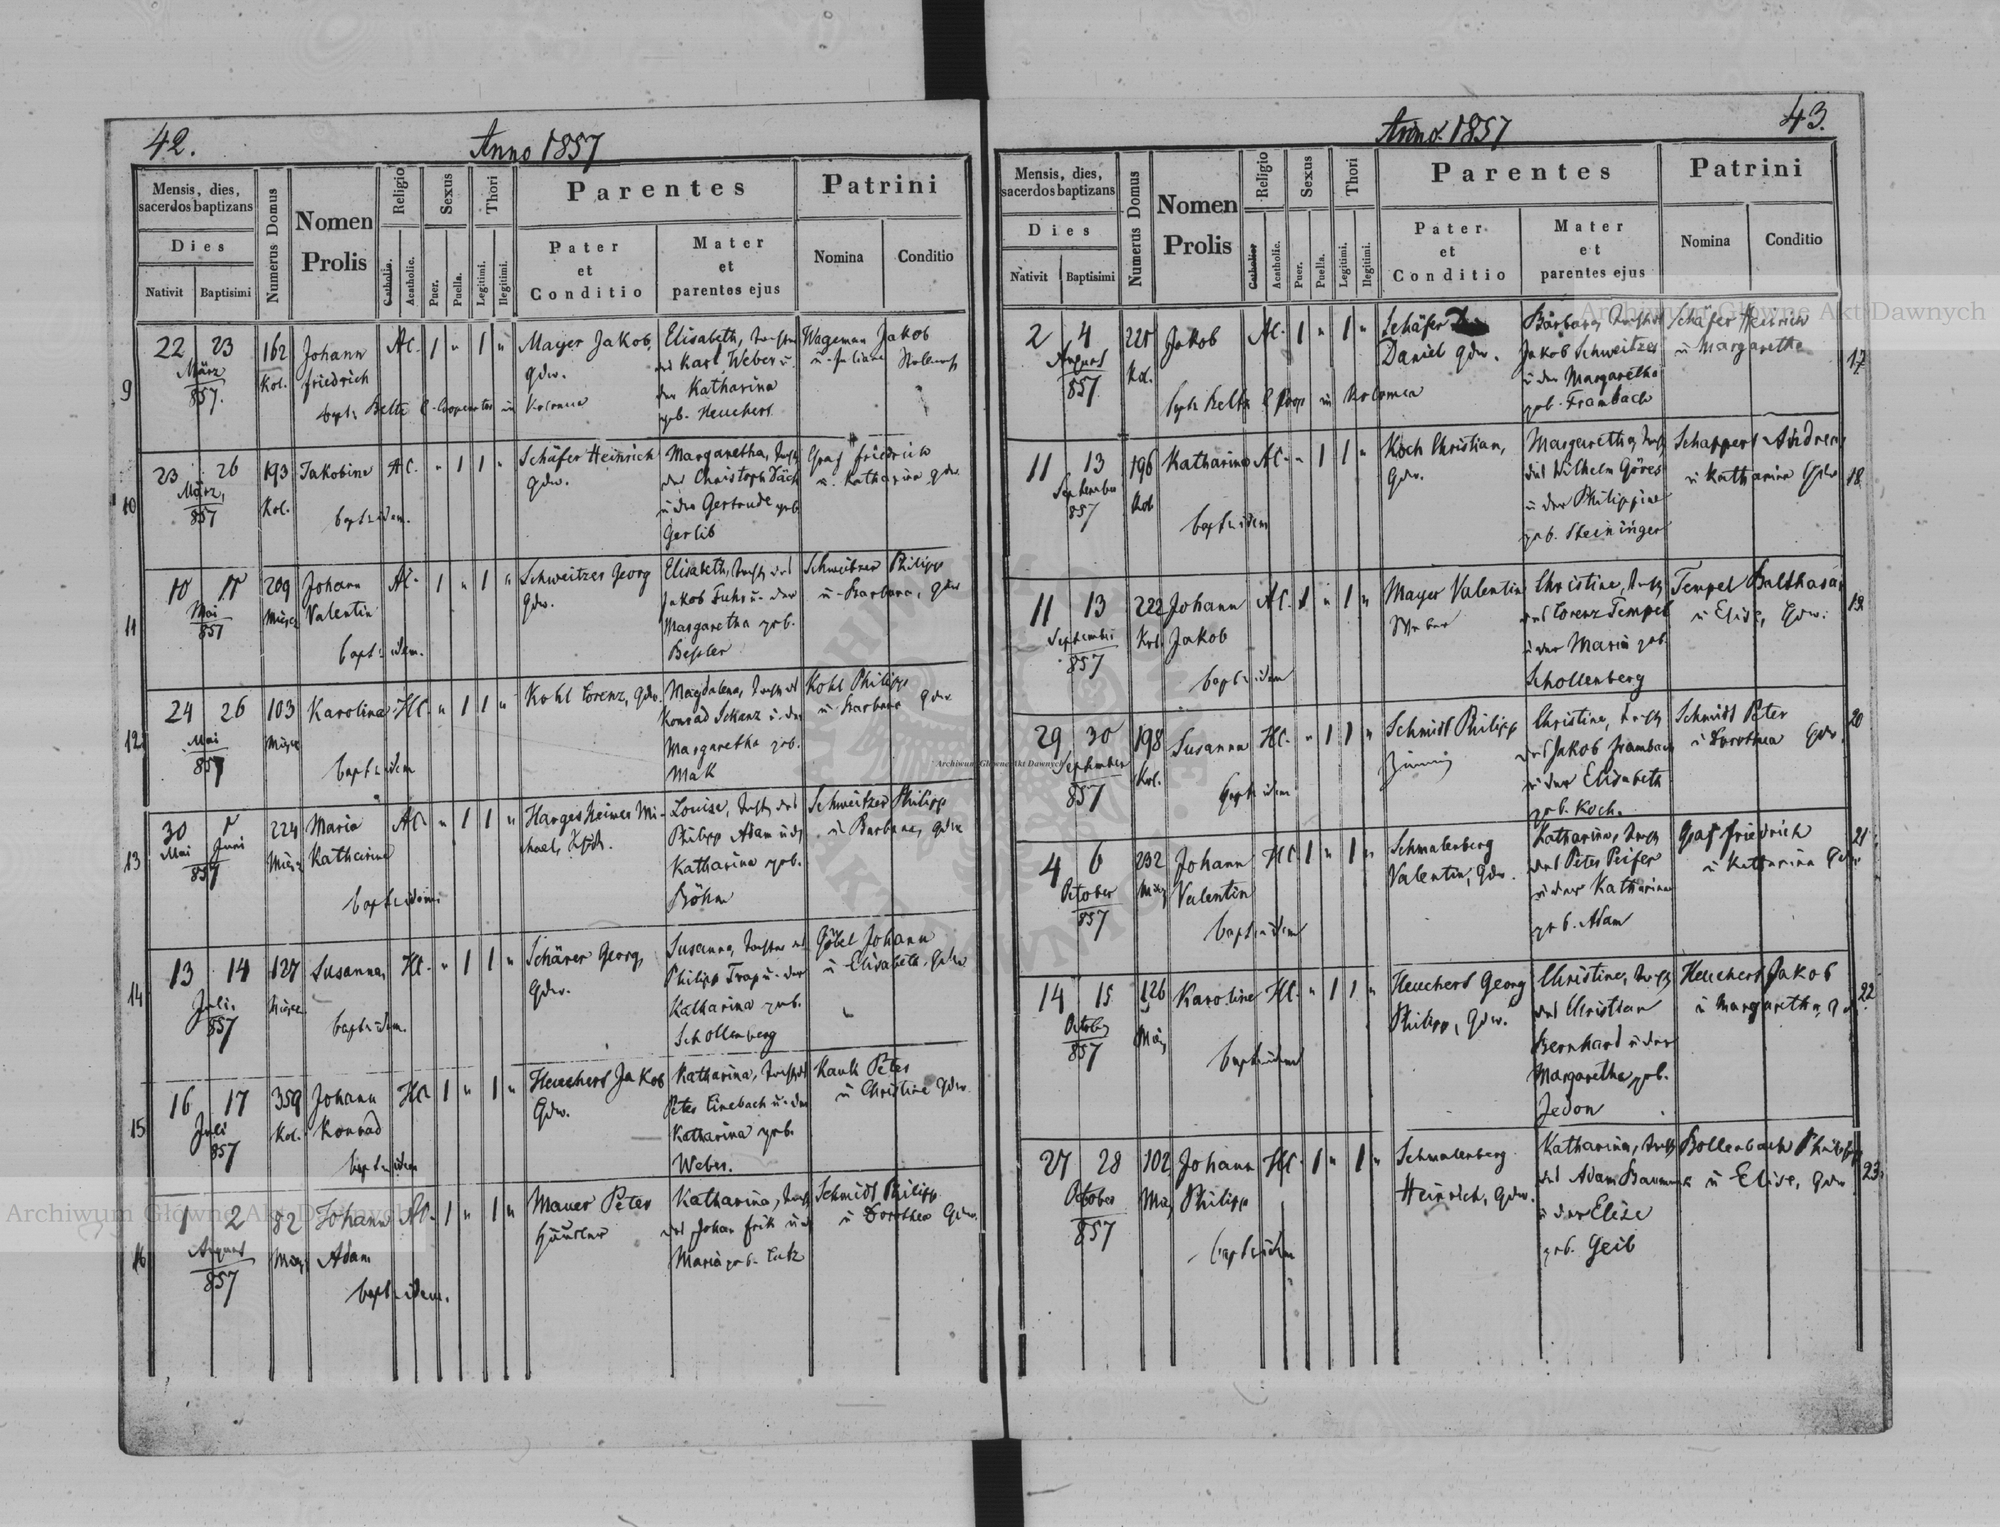 42.
Anno 1857
Mensis, dies,
sacerdos baptizans
Dies
Nativit
Baptisimi
Numerus Domus
Nomen
Prolis
Religio
Catholic.
Acatholic.
Sexus
Puer.
Puella.
Thori
Legitimi.
Ilegitimi.
Parentes
Pater
et
Conditio
Mater
et
parentes ejus
Patrini
Nomina
Conditio
9
22 23 162 Johann AC. 1 " 1 " Mayer Jakob, Elisabeth, Wageman Jakob
März Kol. Friedrich Gdw. des Karl Weber u. u. Juliane
857. der Katharina
geb. Heuchert
10
23 26 193 Jakobine AC. " 1 1 " Schäfer Heinrich Margaretha, Graf Friedrich
März, Kol. Gdw. des Christoph u. Katharina Gdw.
857 bapt. idem. u der Gertrude geb.
Gerlib
11
10 11 209 Johann AC. 1 " 1 " Schweitzer Georg Elisabeth, Schweitzer Philipp
Mai Valentin Gdw. Jakob Fuhr u. der u. Barbara, Gdw
857 bapt. idem. Margaretha geb.
Beßler
12.
24 26 103 Karolina HC. " 1 1 " Kohl Lorenz, Gdw. Magdalena, Kohl Philipp
Mai Konrad Schanz u. der u Barbara Gdw
857 bapt. idem Margaretha geb.
Mak
13
30 1 224 Maria AC. " 1 1 " Hargesheimer Mi- Louise, Schweitzer Philipp
Mai Juni Katharina chael, Philipp Adam u d. u Barbara, Gdw
857 bapt. idem Katharina geb.
Böhm
14
13 14 127 Susanna, HC. " 1 1 " Schärer Georg, Susanna, Göbel Johann
Juli. Gdw. Philipp Trap u. der u Elisabeth. Gdw
857 bapt. idem. Katharina geb.
Schollenberg
15
16 17 359 Johann HC. 1 " 1 " Heuchert Jakob Katharina, Kauk Peter
Juli Kol. Konrad Gdw. Peter Linebach u. der u Christine Gdw.
857 bapt. idem Katharina geb.
Weber.
16
1 2 82 Johann AC. 1 " 1 " Mauer Peter Katharina, Schmidt Philipp
August Adam Häusler des Johan Frik u d u Dorothea Gdw.
857 bapt. idem. Maria geb. Lutz
43.
Anno 1857
Mensis, dies,
sacerdos baptizans
Dies
Nativit
Baptisimi
Numerus Domus
Nomen
Prolis
Religio
Catholic.
Acatholic.
Sexus
Puer.
Puella.
Thori
Legitimi.
Ilegitimi.
Parentes
Pater
et
Conditio
Mater
et
parentes ejus
Patrini
Nomina
Conditio
2 4 225 Jakob AC. 1 " 1 " Schäfer Barbara, Schäfer Heinrich 17
August Kol. Daniel Gdw. Jakob Schweitzer u Margaretha
857 u der Margaretha
geb. Frambach
11 13 196 Katharina AC. " 1 1 " Koch Christian, Margaretha, Schappert Andreas 18
September Kol. Gdw. des Wilhelm Göres u Katharina Gdw
857 bapt. idem u der Philippine
geb. Steininger
11 13 222 Johann AC. 1 " 1 " Mayer Valentin Christine, Tempel Balthasar 19
September Kol. Jakob Weber des Lorenz Tempel u Elise, Gdw.
857 bapt. idem u der Maria geb.
Schollenberg
29 30 198 Susanna HC. " 1 1 " Schmidt Philipp Christine, Schmidt Peter 20
September Kol. des Jakob Frambach u Dorothea Gdw.
857 bapt. idem u der Elisabeth
geb. Koch.
4 6 232 Johann HC. 1 " 1 " Schmalenberg Katharina, Graf Friedrich 21
October Valentin Valentin, Gdw. des Peter Peifer u Katharina Gdw
857 bapt. idem u der Katharina
geb. Adam
14 15 126 Karoline HC. " 1 1 " Heuchert Georg Christine, Heuchert Jakob 22
October Philipp, Gdw. des Christian u Margaretha,
857 bapt. idem Bernhard u der
Margaretha geb.
Jedon
27 28 102 Johann HC. 1 " 1 " Schmalenberg Katharina, Bollenbach Philipp 23.
October Philipp Heinrich, Gdw. des Adam Baumann u Elise, Gdw
857 bapt. idem u der Elise
geb. Geib
Archiwum Główne Akt Dawnych
Archiwum Główne Akt Dawnych
Archiwum Główne Akt Dawnych